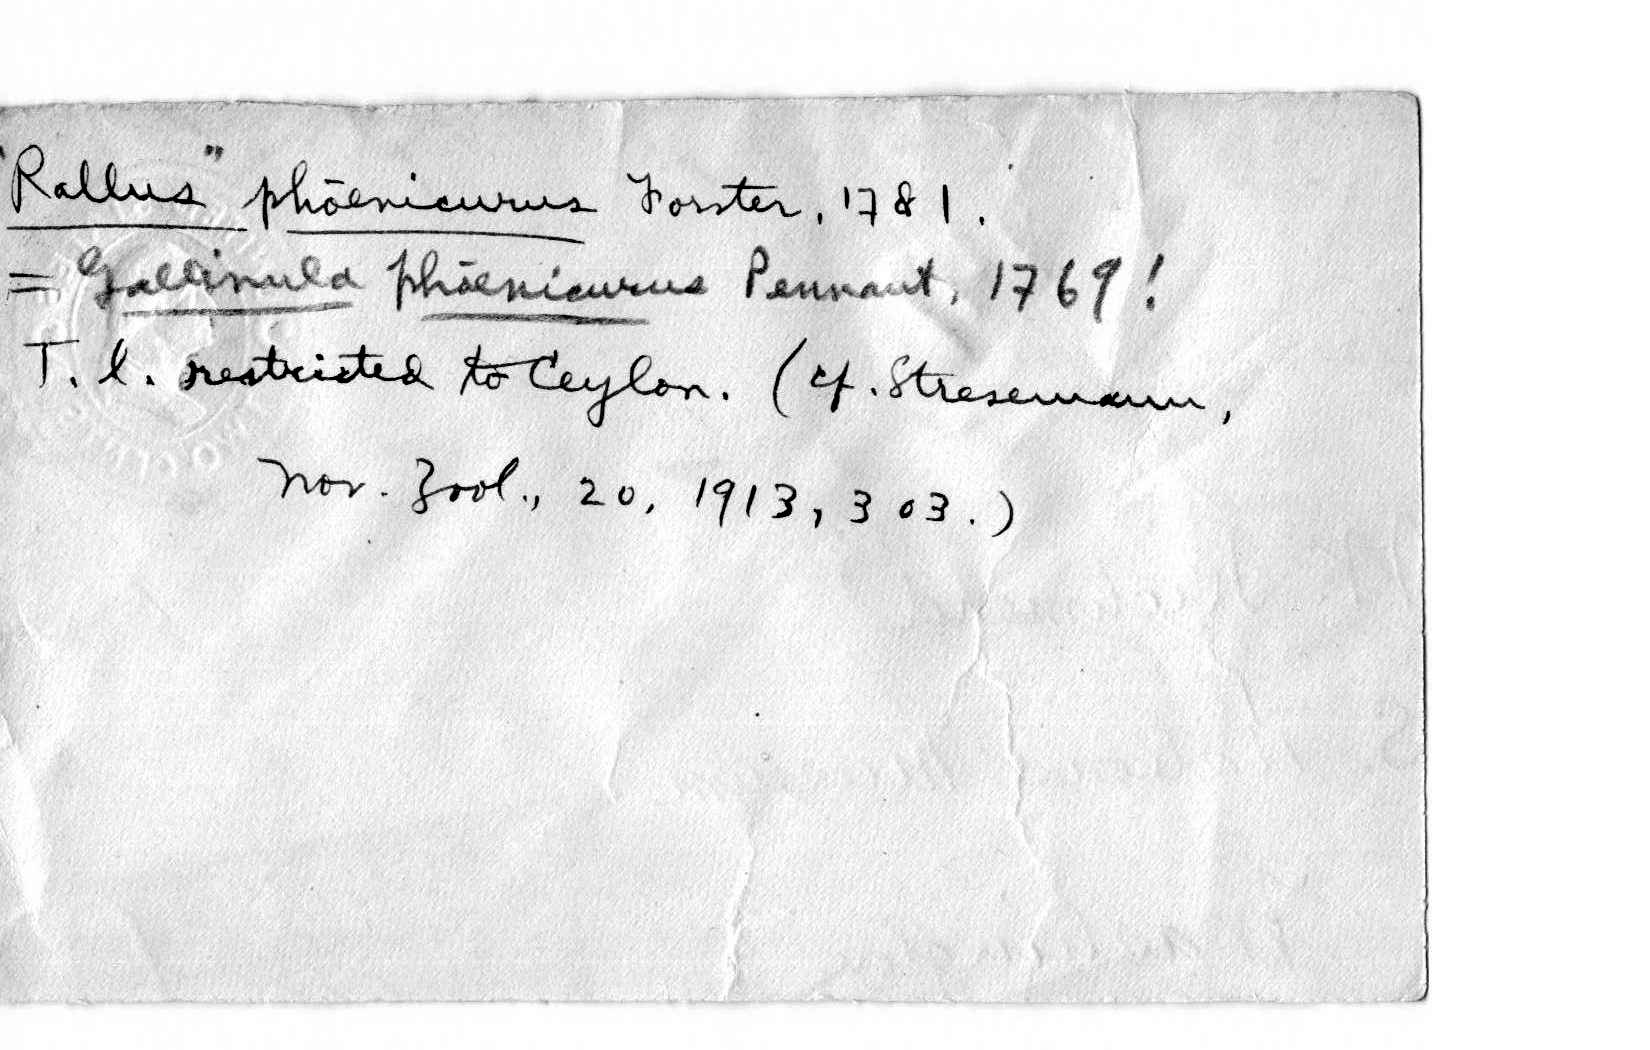 "Rallus" phōenicurus Forster, 1781.
= Gallinula phōenicurus Pennant, 1769!
T. l. restricted to Ceylon. (cf. Stresemann,
Nov. Zool., 20, 1913, 303.)